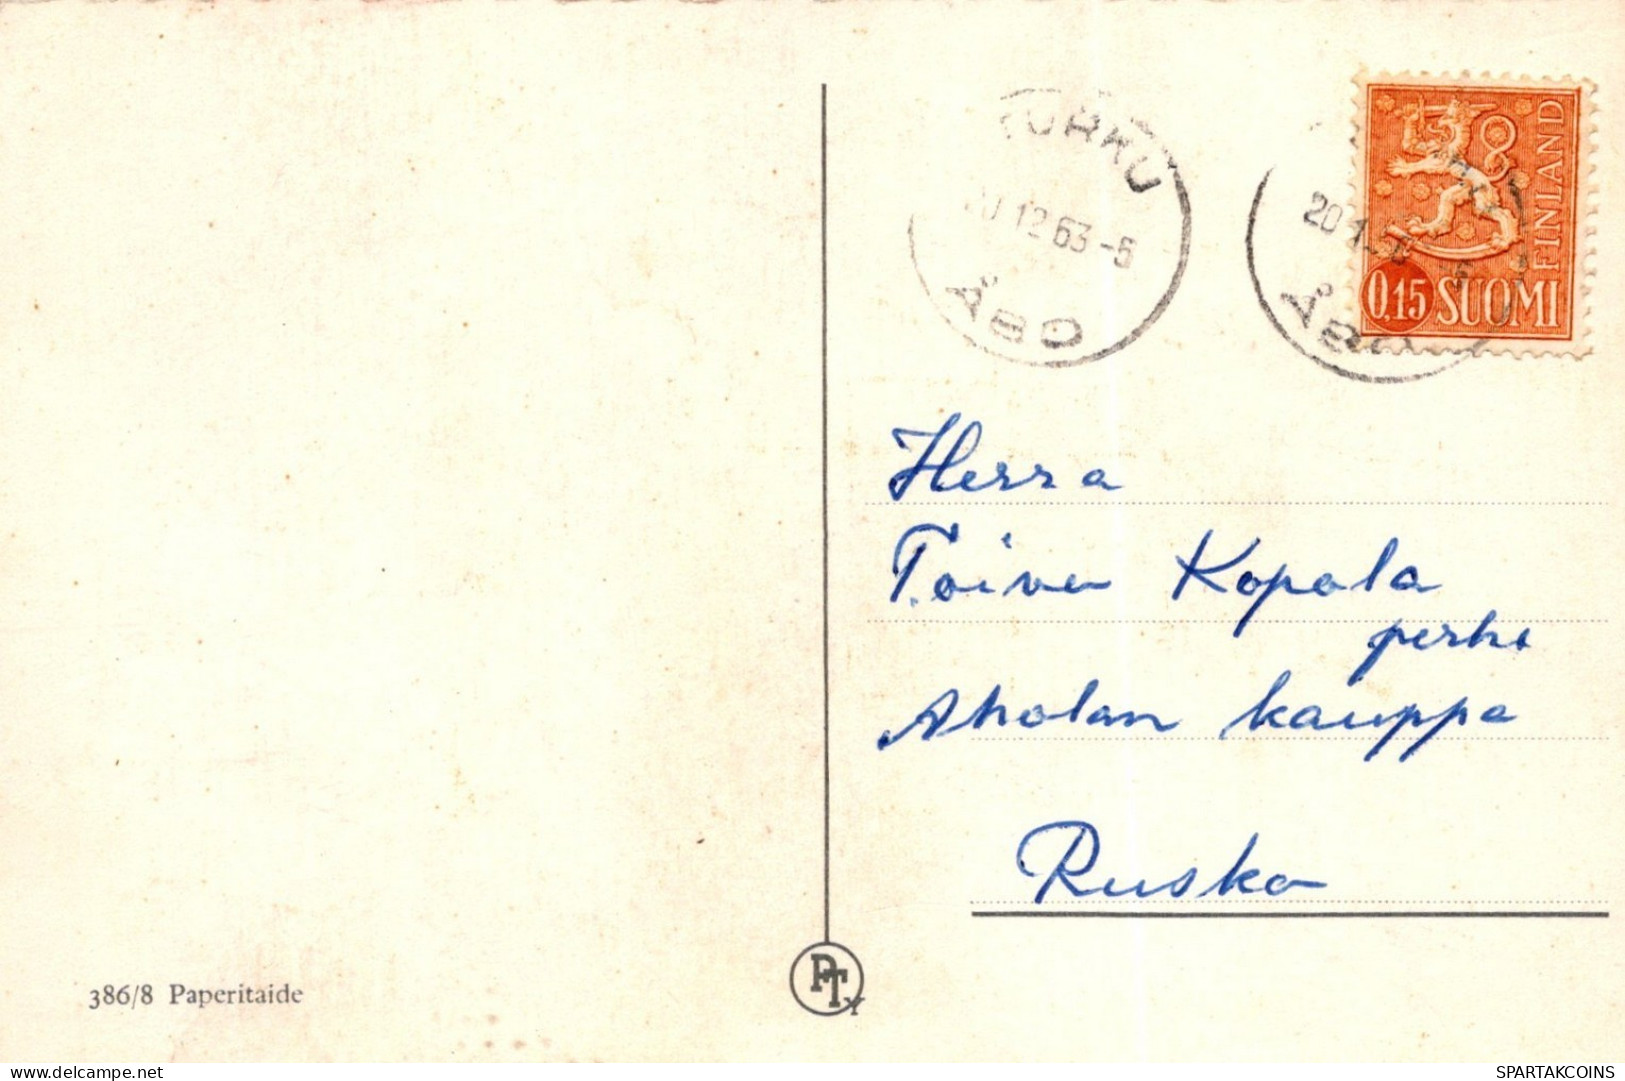 TURKU
20 12 63 -5
ÅBO
20 1
ÅBO
FINLAND
0,15 SUOMI
Herra
Toivo Kopola
perhe
Aholan kauppa
Rusko
386/8 Paperitaide
PTY
www.delcampe.net
SPARTAKCOINS